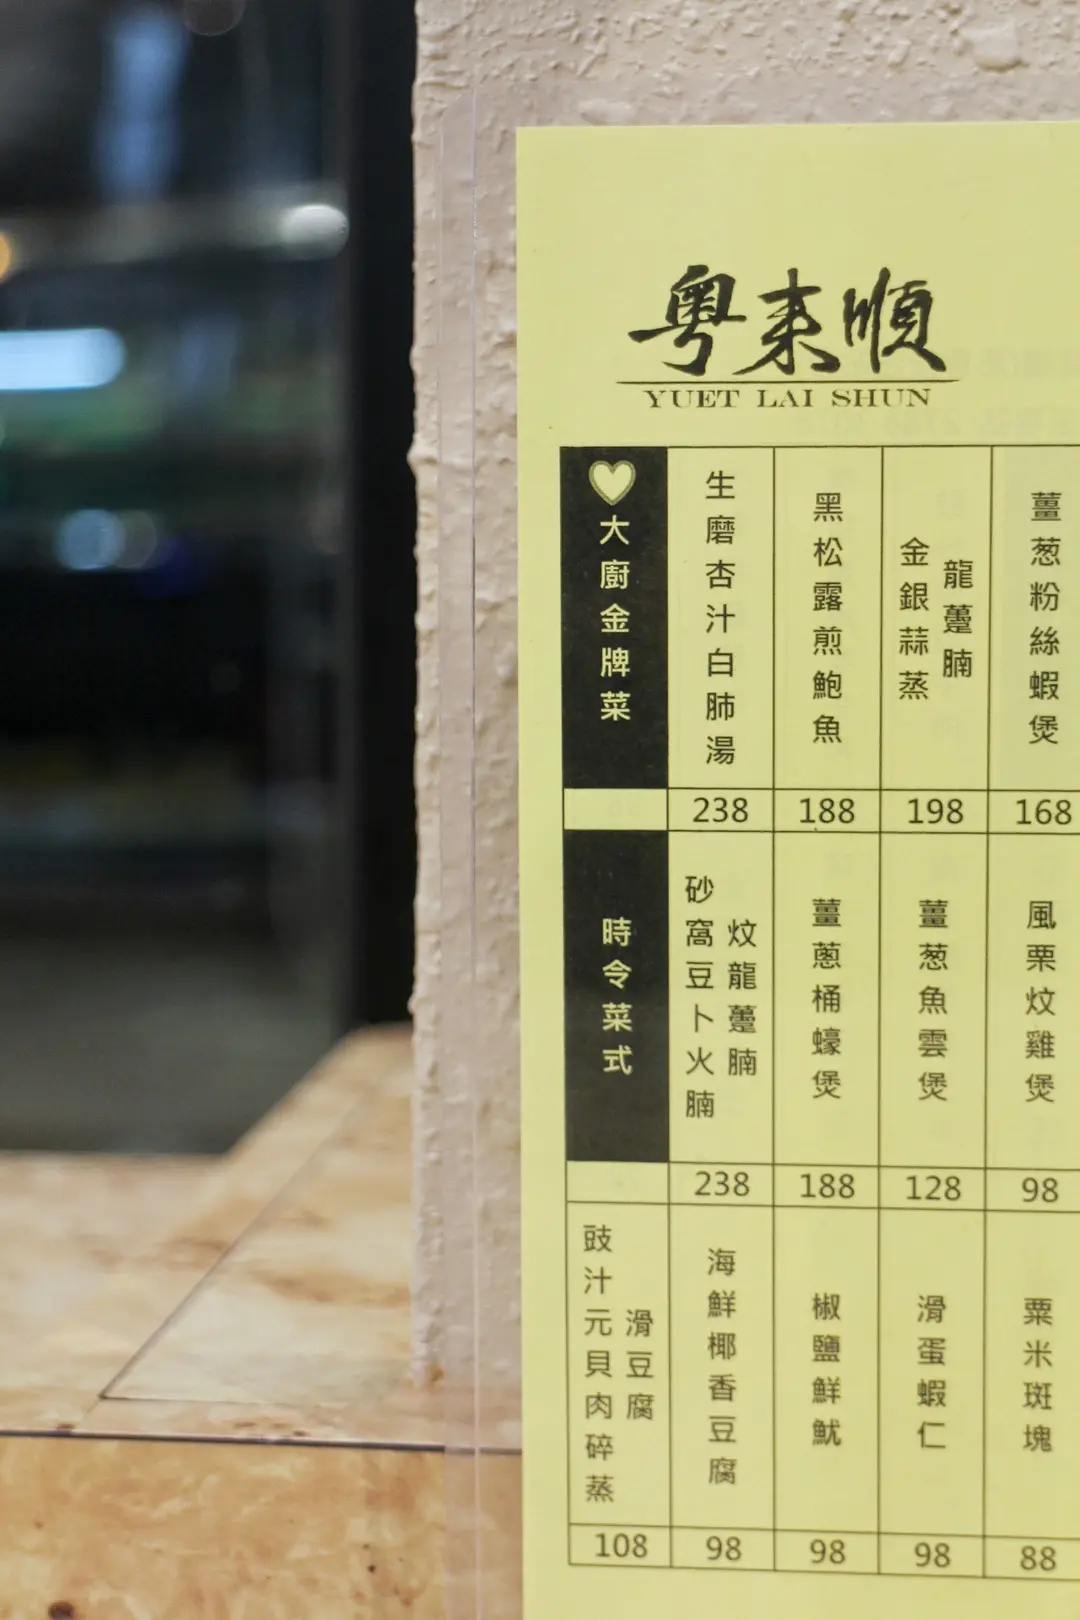 粵来順
YUET LAI SHUN
大廚金牌菜
生磨杏汁白肺湯
238
黑松露煎鮑魚
188
金銀蒜蒸
龍躉腩
198
薑葱粉絲蝦煲
168
時令菜式
砂窩豆卜火腩
炆龍躉腩
238
薑蔥桶蠔煲
188
薑葱魚雲煲
128
風栗炆雞煲
98
豉汁元貝肉碎蒸
滑豆腐
108
海鮮椰香豆腐
98
椒鹽鮮魷
98
滑蛋蝦仁
98
粟米斑塊
88